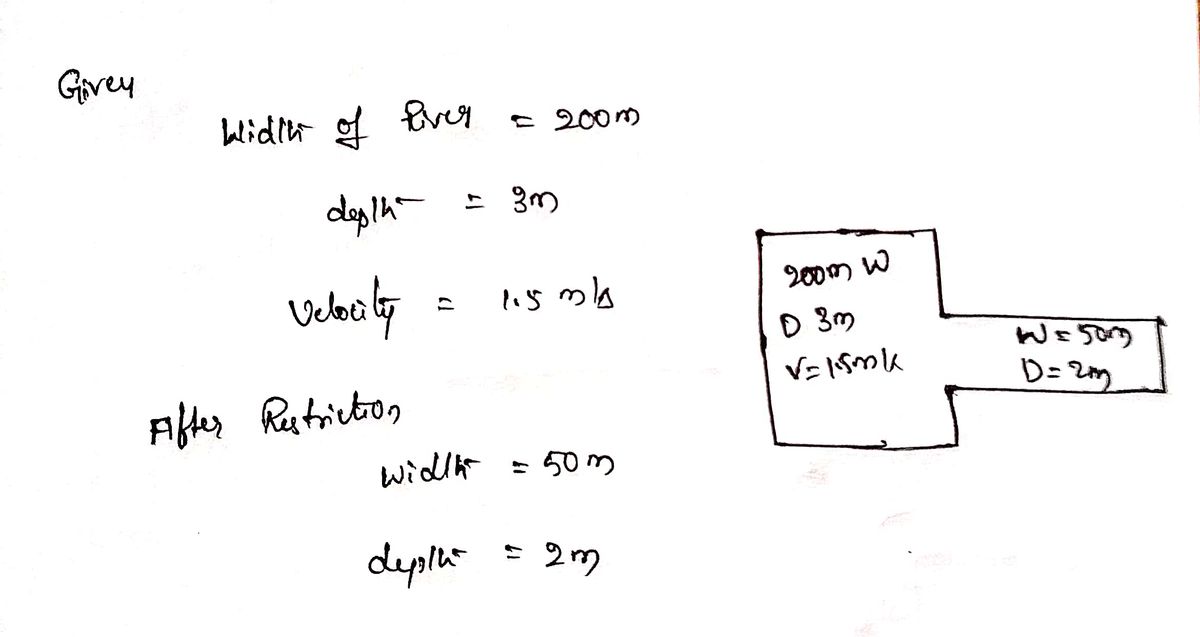 Given
Width of River = 200m
depth = 3m
Velocity = 1.5 m/s
After Restriction
width = 50 m
depth = 2 m
200m W
D 3m
V=1.5m/s
W = 50m
D = 2m